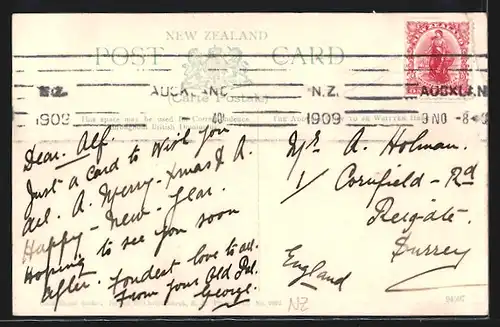 NEW ZEALAND
POST CARD
(Carte Postale)
N.Z. AUCKLAND N.Z. AUCKLAN
1909 1909 9 NO -8-
This space may be used for Correspondence
Dear. Alf.
Just a card to Wish you
all. A. Merry - Xmas & A
Happy - New - Year.
Hoping to see you soon
after. Fondest love to all.
From your Old Pal.
George.
Mr A. Holman.
1/ Cornfield - Rd
Reigate.
Surrey
England
NZ